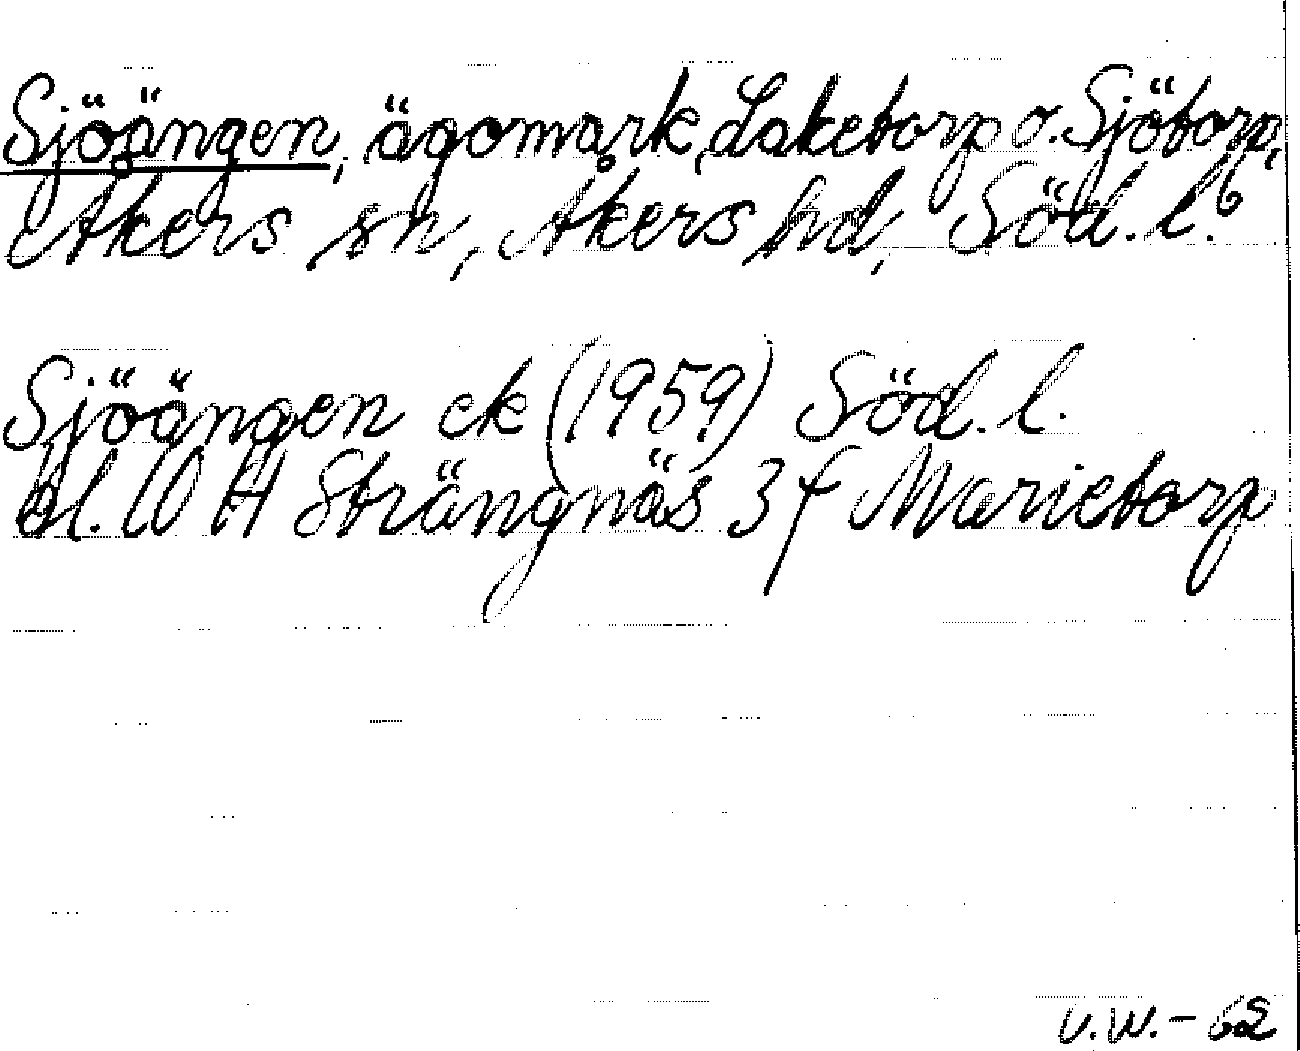 Sjöängen, ägomark, Laketorp o. Sjötorp,
Åkers sn, Åkers hd, Söd. l.
Sjöängen ek (1959) Söd. l.
bl. 10 H Strängnäs 3 f Marietorp
V.W. - 62